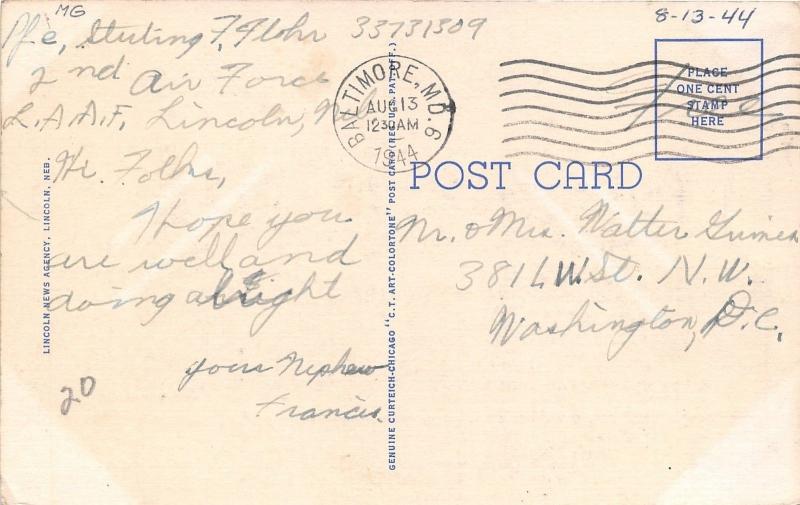 MG
8-13-44
Pfc, Sterling F. Flohr 33731309
2nd Air Force
L.A.A.F. Lincoln, Neb
Hi Folks,
I hope you
are well and
doing alright
your Nephew
Francis.
20
LINCOLN NEWS AGENCY, LINCOLN, NEB.
GENUINE CURTEICH-CHICAGO "C.T. ART-COLORTONE" POST CARD (REG. U.S. PAT. OFF.)
BALTIMORE, MD. 6
AUG 13
12 30 AM
1944
PLACE
ONE CENT
STAMP
HERE
Free
POST CARD
Mr. & Mrs. Walter Grimes
3816 W. St. N.W.
Washington, D.C.